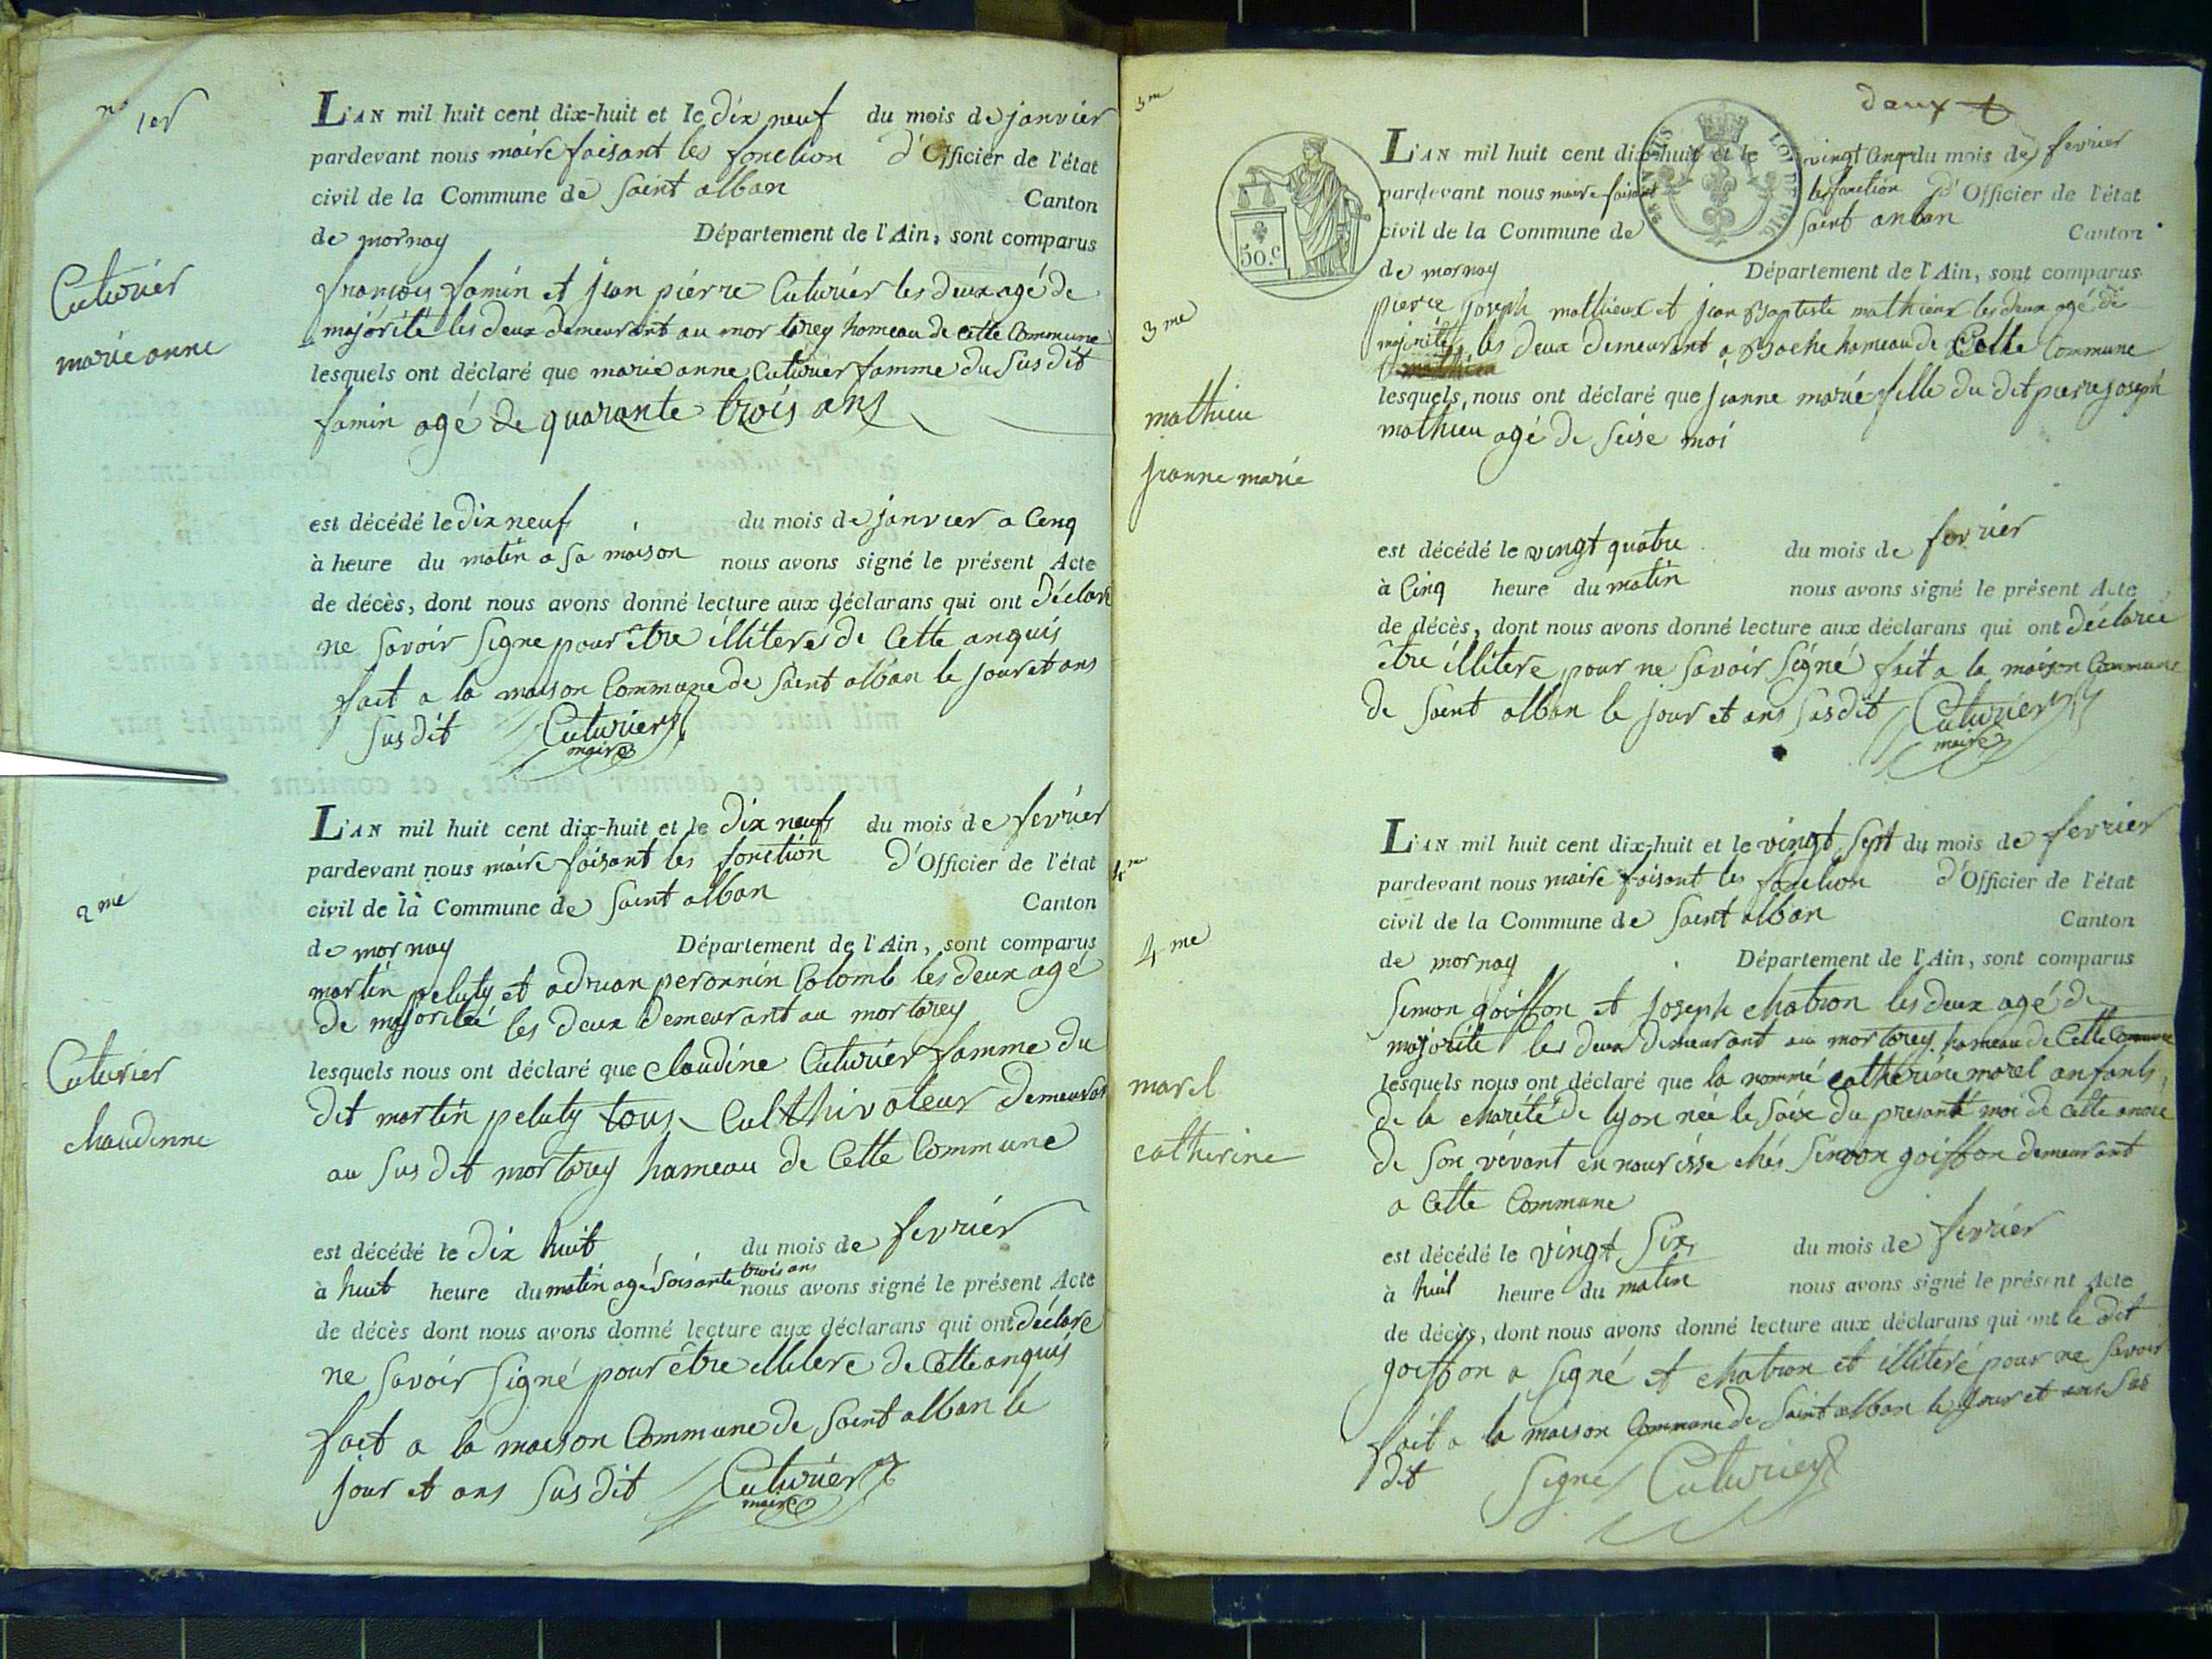 n° 1er
L'AN mil huit cent dix-huit et le dix neuf du mois de janvier
pardevant nous maire faisant les fonction d'Officier de l'état
civil de la Commune de Saint alban Canton
de mornay Département de l'Ain, sont comparus
Cuturier
marie anne
françois famin et jean pierre Cuturier les deux agé de
majorité les deux demeurant au mortarey hameau de cette Commune
lesquels ont déclaré que marie anne Cuturier famme du Susdit
famin agé de quarante trois ans
est décédé le dix neuf du mois de janvier a Cenq
à heure du matin a sa maison nous avons signé le présent Acte
de décès, dont nous avons donné lecture aux déclarans qui ont Déclaré
ne Savoir Signe pour être illiteré de Cette anquis
fait a la maison Commune de Saint alban le jour et ans
Susdit Cuturier
maire
2me
L'AN mil huit cent dix-huit et le dix neuf du mois de fevrier
pardevant nous maire faisant les fonction d'Officier de l'état
civil de la Commune de Saint alban Canton
de mornay Département de l'Ain, sont comparus
martin peluty et adruan peronnin Colomb les deux agé
De majorité les deux Demeurant au mortarey
Cuturier
Claudinne
lesquels nous ont déclaré que claudine Cuturier famme du
Dit martin peluty tous Culthivateur Demeurant
au Susdit mortarey hameau de Cette Commune
est décédé le dix huit du mois de fevrier
à huit heure du matin agé Soisante trois ans nous avons signé le présent Acte
de décès dont nous avons donné lecture aux déclarans qui ont Déclare
ne Savoir Signé pour être illitere de Cette anquis
fait a la maison Commune de Saint alban le
jour et ans Susdit Cuturier
maire
3me
deux
50.c
L'AN mil huit cent dix-huit et le vingt cinq du mois de fevrier
pardevant nous maire faisant les fonction d'Officier de l'état
civil de la Commune de Saint anban Canton
de mornay Département de l'Ain, sont comparus
3me
mathieu
jeanne marie
pierre joseph mathieux et jean Baptiste mathieux les deux agé de
majorité les deux Demeurant a Boche hameau de Cette Commune
lesquels, nous ont déclaré que jeanne marie fille du dit pierre joseph
mathieu agé de Seise moi
est décédé le vingt quatre du mois de fevrier
à Cinq heure du matin nous avons signé le présent Acte
de décès, dont nous avons donné lecture aux déclarans qui ont Déclareé
être illitere pour ne Savoir Signé fait a la maison Commune
de Saint alban le jour et ans Susdit Cuturier
maire
4me
L'AN mil huit cent dix-huit et le vingt Sept du mois de fevrier
pardevant nous maire faisant les fonction d'Officier de l'état
civil de la Commune de Saint alban Canton
4me
de mornay Département de l'Ain, sont comparus
Simon goiffon et joseph chatron les deux agé de
majorité les deux demeurant au mortarey hameau de Cette Commune
marel
catherine
lesquels nous ont déclaré que la nommé catherine morel anfants
De la charité de lyon née le Saize du presant moi de cette année
De Son vévant en nourisse chés Simon goiffon demeurant
a Cette Commune
est décédé le vingt Six du mois de fevrier
à huit heure du matin nous avons signé le présent Acte
de décès, dont nous avons donné lecture aux déclarans qui ont le dit
goiffon a Signé et chatron et illiteré pour ne Savoir
fait a la maison Commune de Saint alban le jour et ans Sus
dit Signé Cuturier